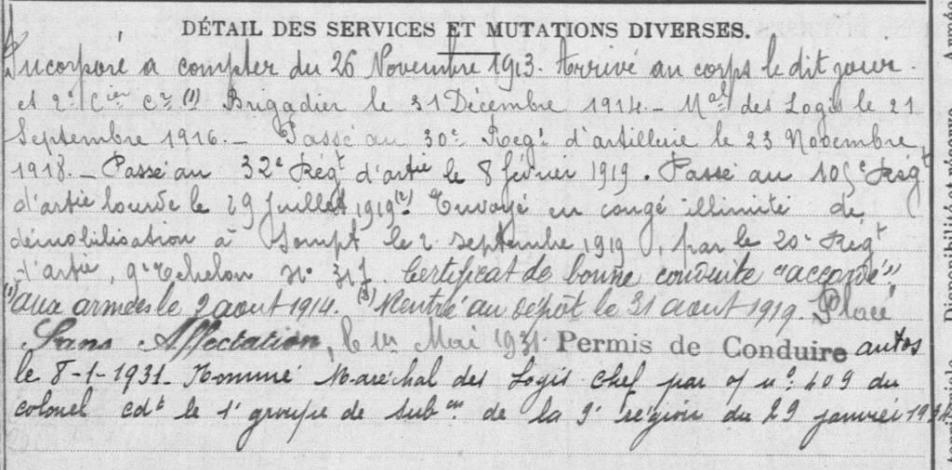 DÉTAIL DES SERVICES ET MUTATIONS DIVERSES.
Incorporé à compter du 26 Novembre 1913. Arrivé au corps le dit jour.
et 2e Cier Cr (1) Brigadier le 31 Décembre 1914. _ Mal des Logis le 21
Septembre 1916. _ Passé au 30e Regt d'artillerie le 23 Novembre
1918. _ Passé au 32e Régt d'artie le 8 février 1919. Passé au 105e Régt
d'artie lourde le 29 Juillet 1919 (2) Envoyé en congé illimité de
démobilisation à Sompt le 2 septembre 1919, par le 20e Régt
d'artie, 9e Echelon No 317. Certificat de bonne conduite "accordé"
(1) aux armées le 2 aout 1914. (3) Rentré au dépôt le 31 août 1919. Placé
Sans Affectation, le 1er Mai 1931. Permis de Conduire autos
le 8-1-1931. Nommé Maréchal des Logis chef par o/ no 409 du
colonel cdt le 1e groupe de subon de la 9e région du 29 janvier